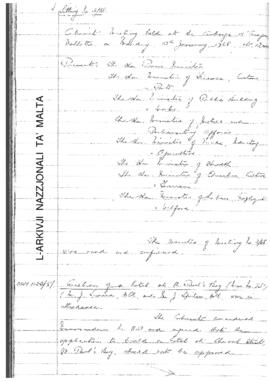 Meeting No 4/58
Cabinet Meeting held at the Auberge d'Aragon
Valletta on Monday 13th January, 1958, at
Present: The Hon Prime Minister
The Hon Minister of Finance, Customs
& Ports
The Hon Minister of Public Building
& Works
The Hon Minister of Justice and
Parliamentary Affairs
The Hon Minister of Trade, Industry
& Agriculture
The Hon Minister of Health
The Hon Minister of Education, Culture
& Tourism
The Hon Minister of Labour, Employment
& Welfare
The minutes of Meeting No 3/58
was read and confirmed.
Erection of a hotel at St Paul's Bay
in
attendance.
The Cabinet considered
Memorandum No and agreed that the
application to build a hotel at Church Street,
St. Paul's Bay, should not be approved.
L-ARKIVJI NAZZJONALI TA' MALTA